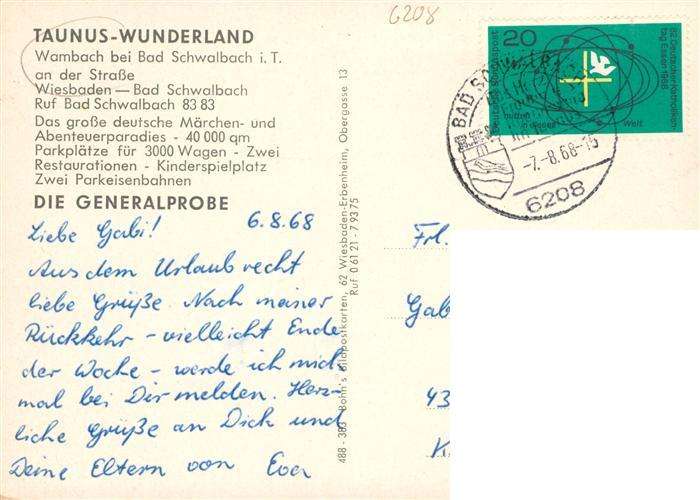 6208
TAUNUS-WUNDERLAND
Wambach bei Bad Schwalbach i. T.
an der Straße
Wiesbaden — Bad Schwalbach
Ruf Bad Schwalbach 83 83
Das große deutsche Märchen- und
Abenteuerparadies - 40 000 qm
Parkplätze für 3000 Wagen - Zwei
Restaurationen - Kinderspielplatz
Zwei Parkeisenbahnen
DIE GENERALPROBE
Liebe Gabi! 6.8.68
Aus dem Urlaub recht
liebe Grüße. Nach meiner
Rückkehr - vielleicht Ende
der Woche - werde ich mich
mal bei Dir melden. Herz-
liche Grüße an Dich und
Deine Eltern von Eva
488 - 383 - Bohn's Bildpostkarten, 62 Wiesbaden-Erbenheim, Obergasse 13
Ruf 0 61 21 - 7 93 75
Frl.
Gab
43
20
Deutsche Bundespost
82. Deutscher Katholikentag Essen 1968
mitten in dieser Welt
BAD
-7.-8.68-15
6208